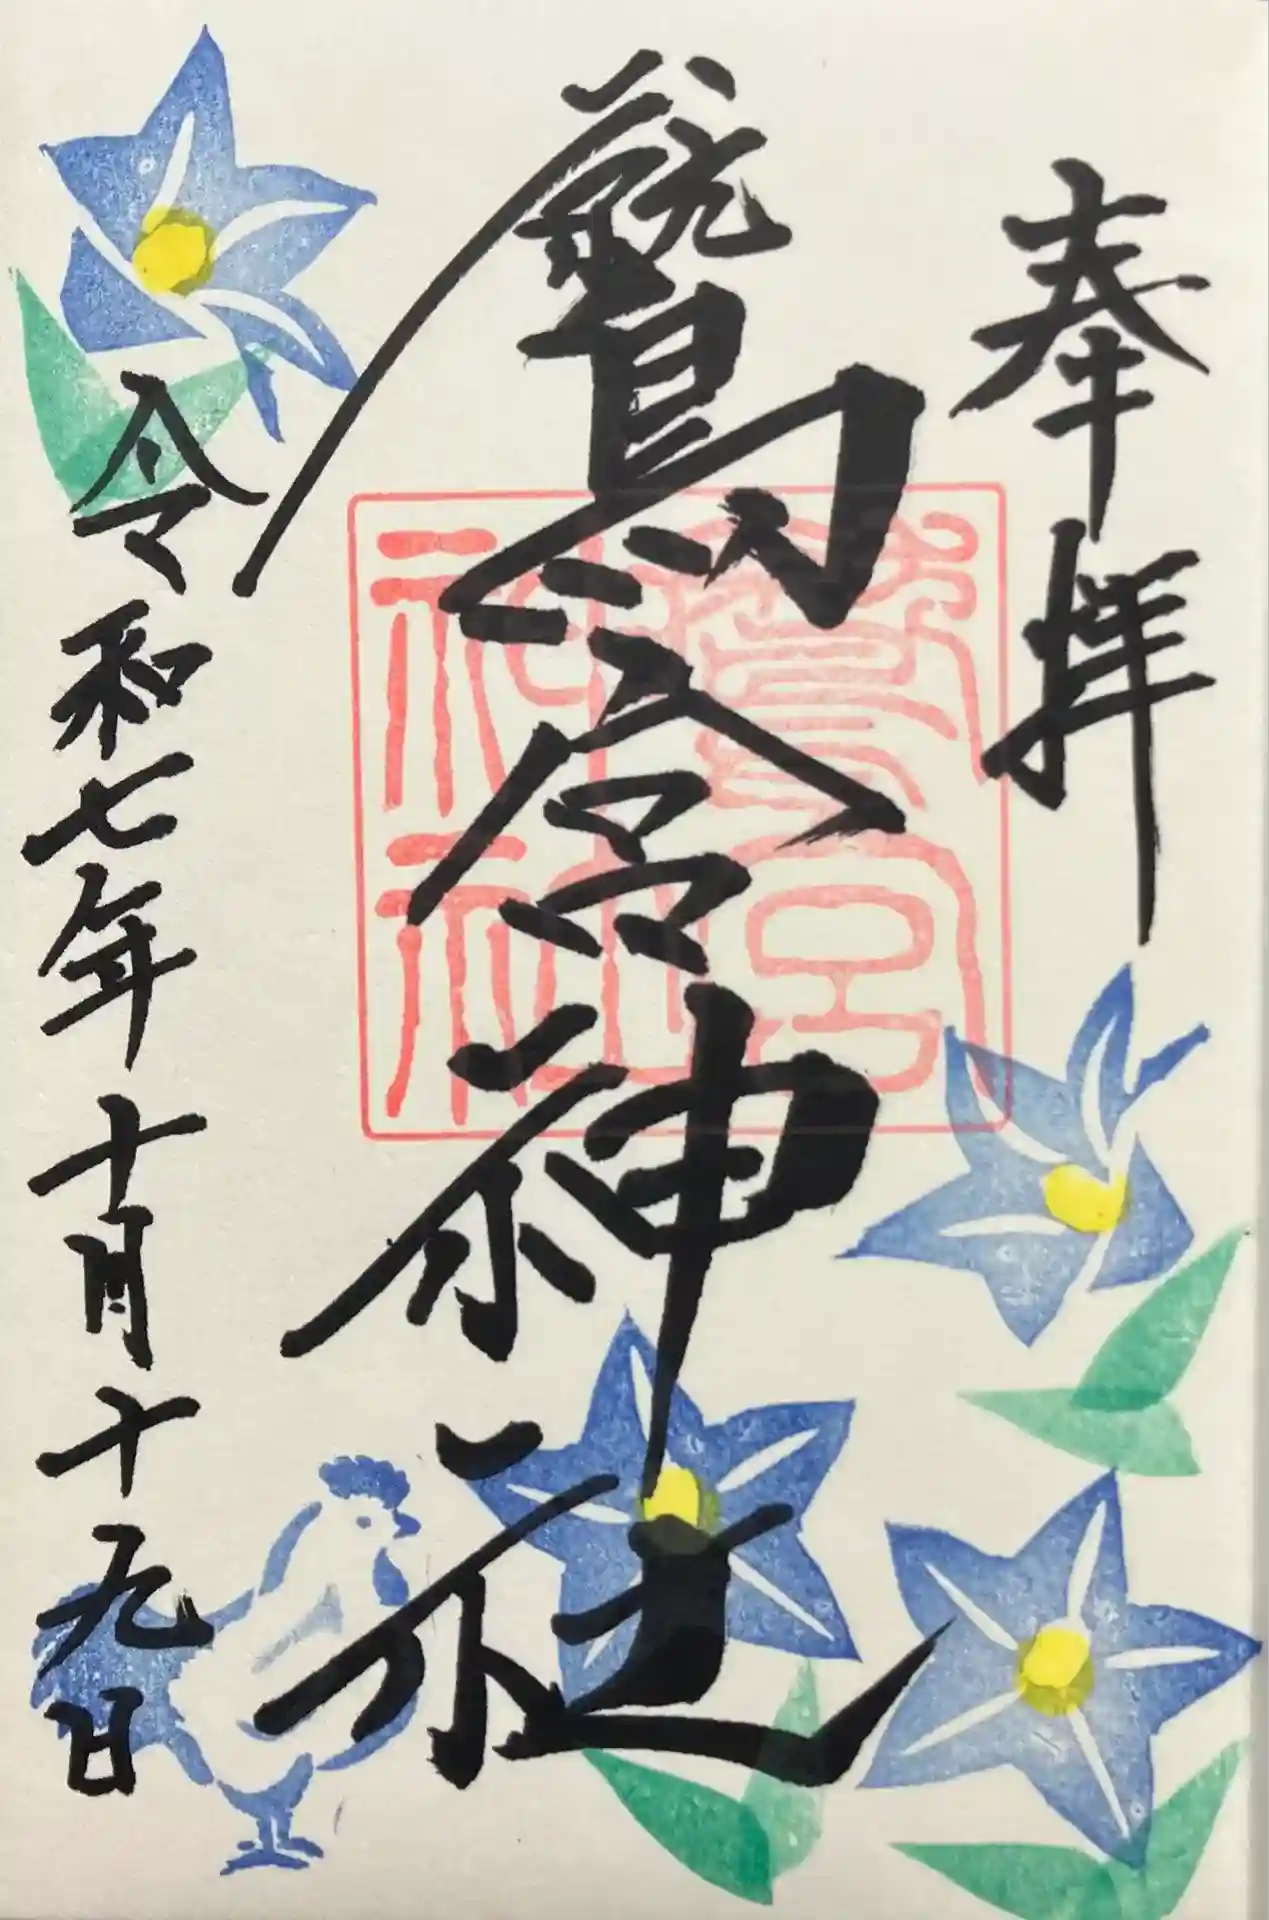 奉拝
鷲宮神社
鷲宮
神社
令和七年十月十九日